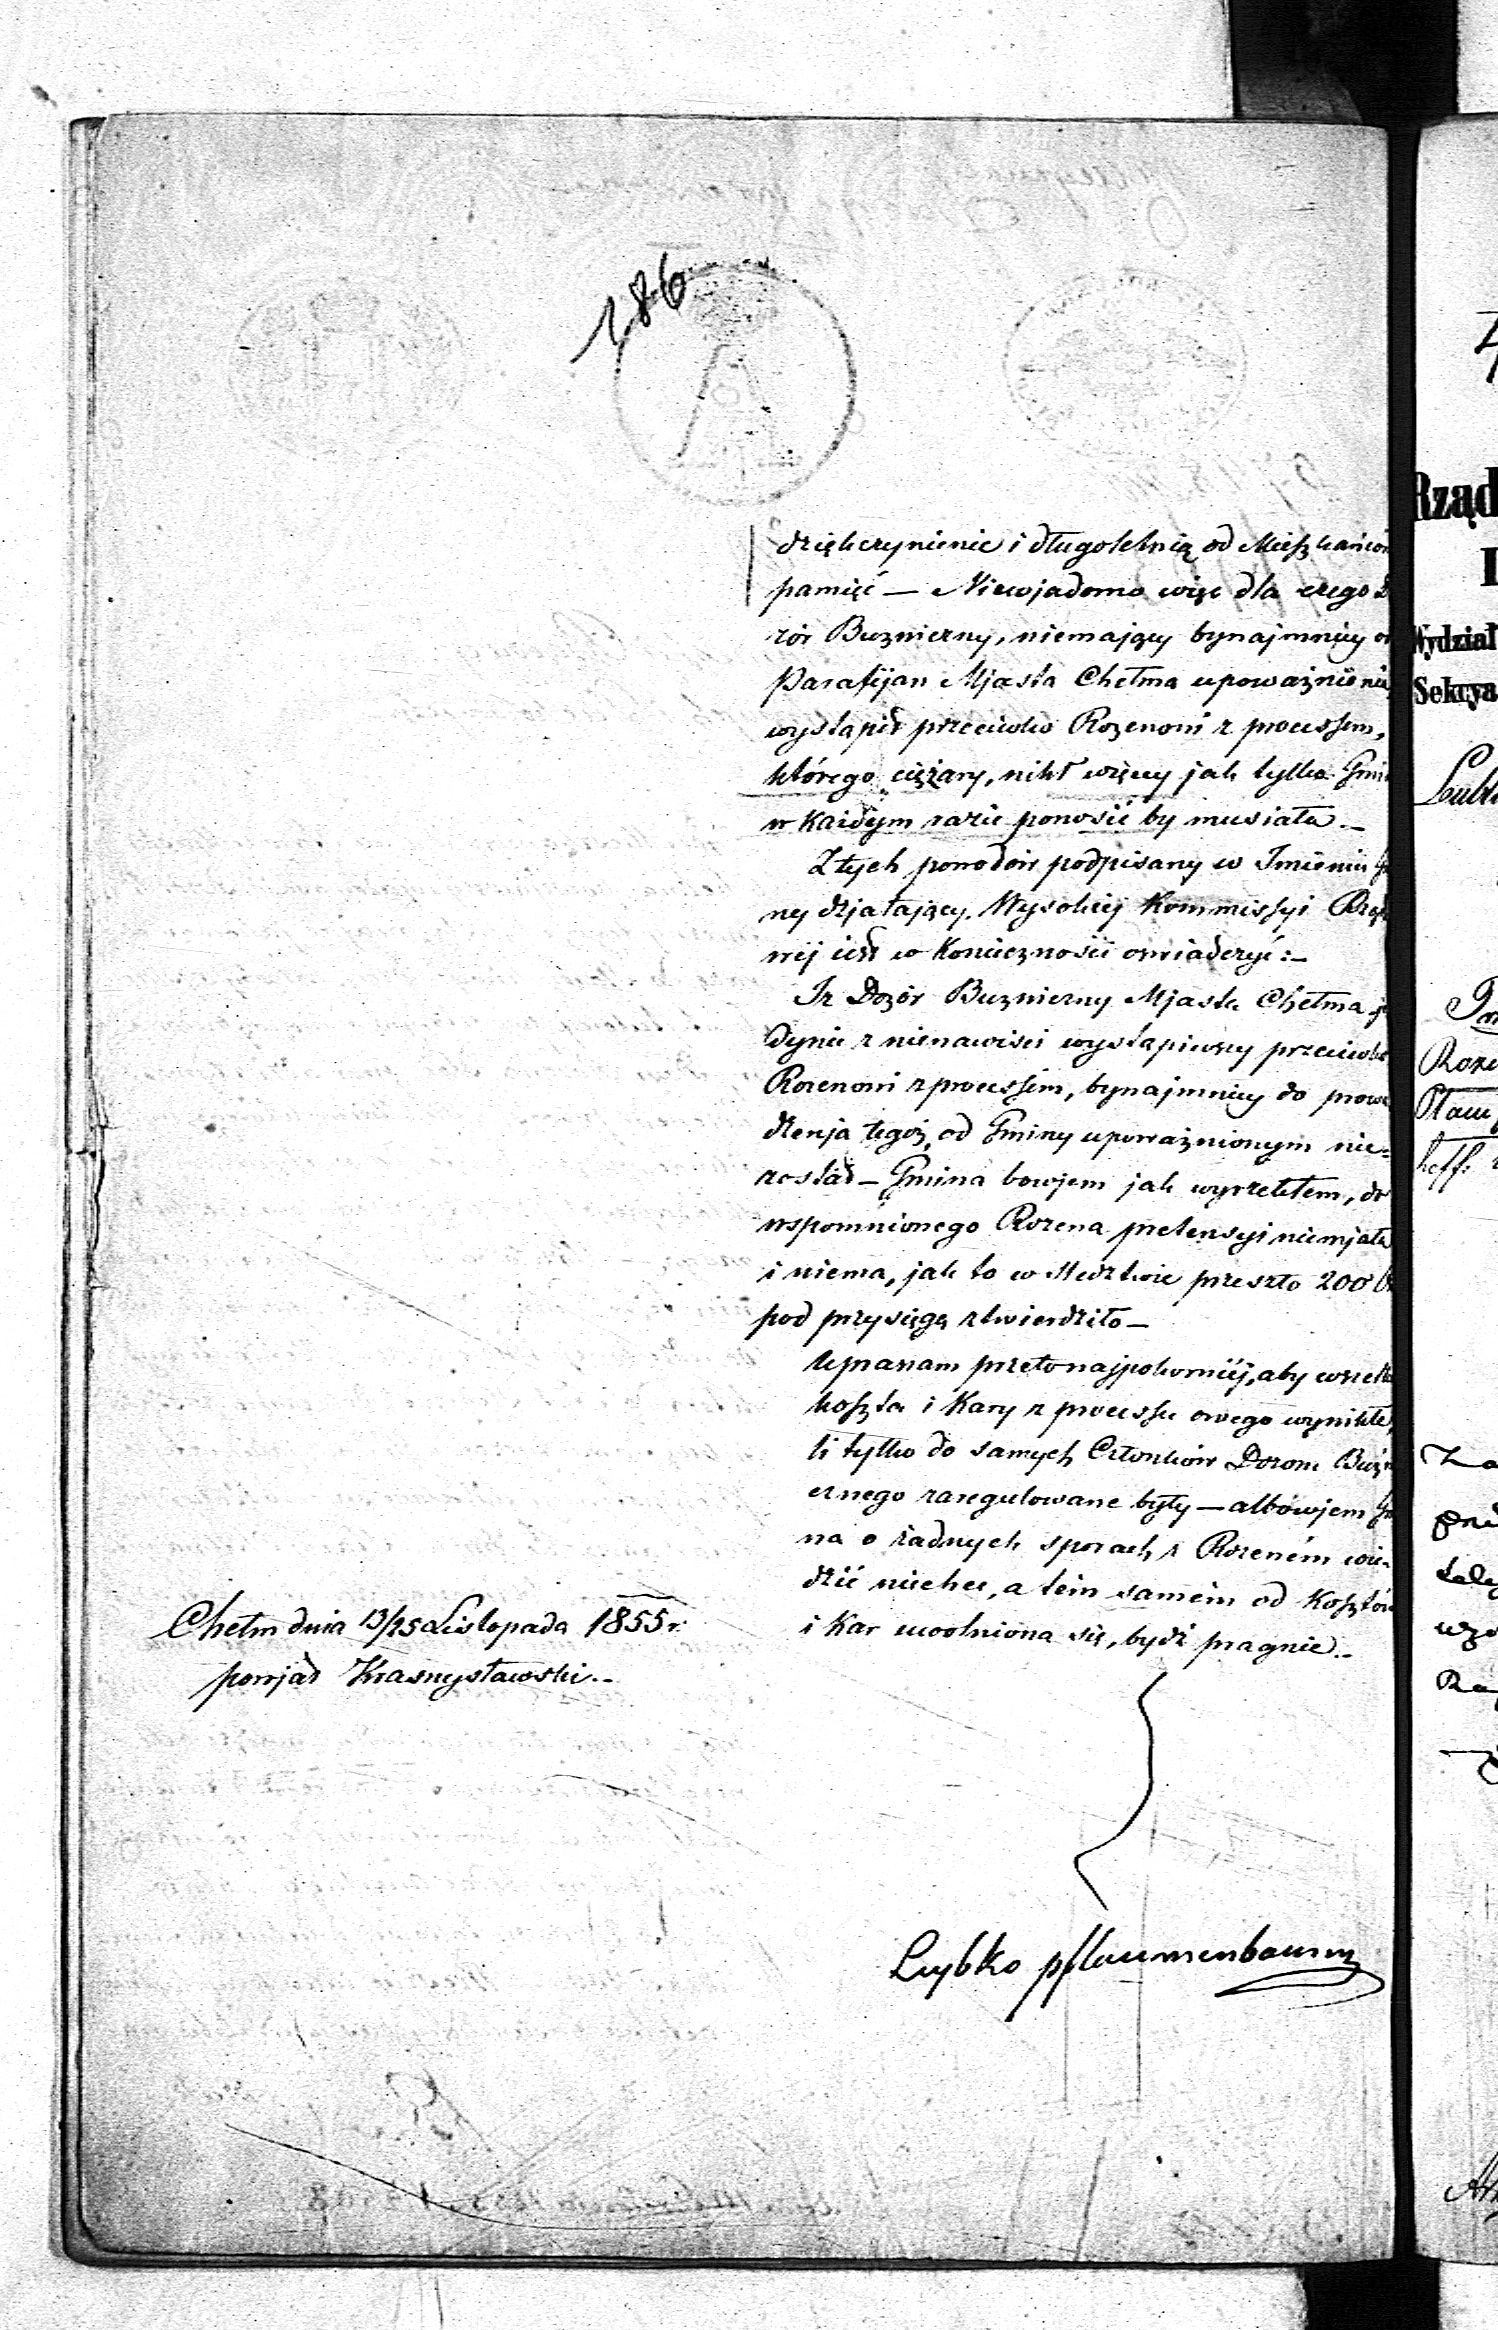 286
dziękczynienie i długoletnią od Mieszkańców
pamięć — Niewjadomo więc dla czego
zór Buzniczny, niemający bynajmniey
Parafijan Mjasta Chełma upoważnienia,
wystąpił przeciwko Rozenowi z processem,
którego ciężary, nikt więcey jak tylko
w każdym razie ponosić by musiała. —
Z tych powodów podpisany w Imieniu
ny dzjałający, Wysokiej Kommissyi
wej jest w Konieczności oswiadczyć: —
Iż Dozór Buzniczny Mjasta Chełma
dynie z nienawisci wystąpiwszy przeciwko
Rozenowi z processem, bynajmniey do prowa
dzenja tegoż, od Gminy upoważnionym nie=
został — Gmina bowjem jak wyrzekłem, do
wspomnionego Rozena pretensyi niemjała
i niema, jak to w Sledztwie przeszło 200
pod przysięgą ztwierdziło —
Upraszam przeto najpokorniéj, aby wszelkie
koszta i Kary z processu owego wynikłe,
li tylko do samych Członków Dozoru Buźni
cznego zaregulowane były — albowjem
na o żadnych sporach z Rozeném wie-
dzić niechce, a tém samém od Kosztów
i Kar uwolniona się, bydź pragnie. —
Chełm dnia 13/25 Listopada 1855 r.
powjat Krasnystawski. —
Luybko pflaumenbaum
Rząd
Wydział
Sekcya